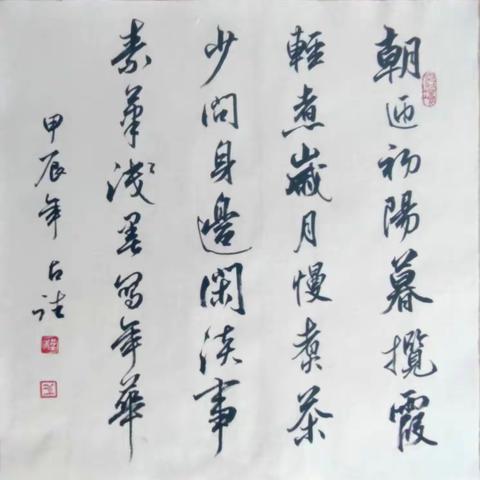 朝迎初陽暮攬霞
輕煮歲月慢煮茶
少問身邊閑淡事
素筆淺墨寫年華
甲辰年